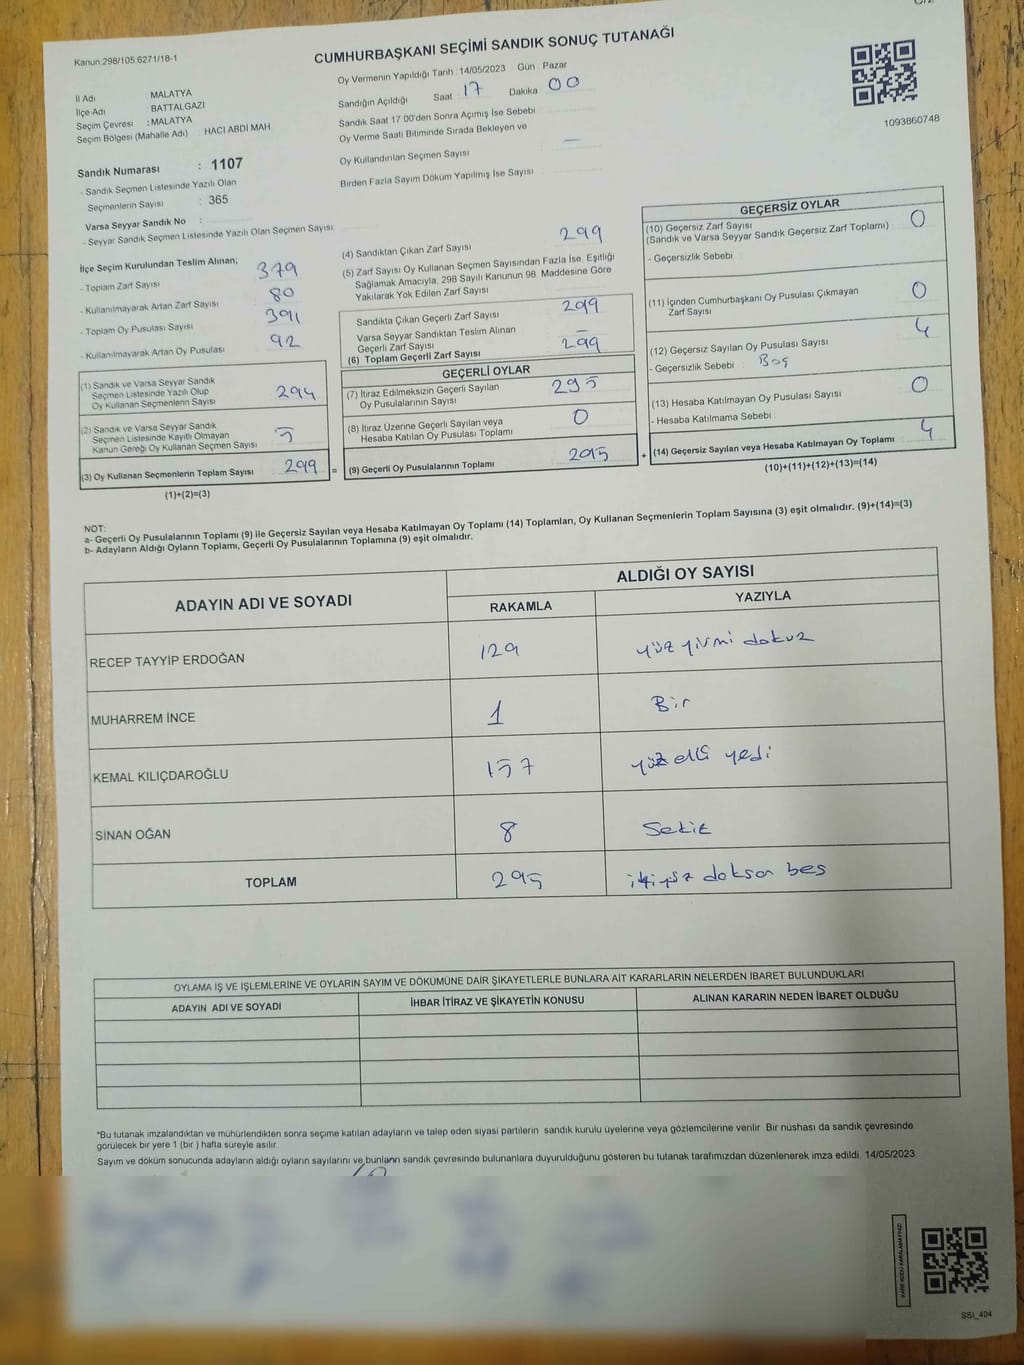 Kanun.298/105.6271/18-1
CUMHURBAŞKANI SEÇİMİ SANDIK SONUÇ TUTANAĞI
Oy Vermenin Yapıldığı Tarih :14/05/2023 Gün : Pazar
İl Adı : MALATYA
İlçe Adı : BATTALGAZİ
Seçim Çevresi : MALATYA
Seçim Bölgesi (Mahalle Adı) : HACI ABDİ MAH.
Sandığın Açıldığı Saat 17 Dakika 00
Sandık Saat 17:00'den Sonra Açımış İse Sebebi :
Oy Verme Saati Bitiminde Sırada Bekleyen ve
Oy Kullandırılan Seçmen Sayısı : —
Birden Fazla Sayım Döküm Yapılmış İse Sayısı :
1093860748
Sandık Numarası : 1107
- Sandık Seçmen Listesinde Yazılı Olan
Seçmenlerin Sayısı : 365
Varsa Seyyar Sandık No :
- Seyyar Sandık Seçmen Listesinde Yazılı Olan Seçmen Sayısı :
İlçe Seçim Kurulundan Teslim Alınan;
- Toplam Zarf Sayısı 379
- Kullanılmayarak Artan Zarf Sayısı 80
- Toplam Oy Pusulası Sayısı 391
- Kullanılmayarak Artan Oy Pusulası 92
(1) Sandık ve Varsa Seyyar Sandık
Seçmen Listesinde Yazılı Olup
Oy Kullanan Seçmenlerin Sayısı 294
(2) Sandık ve Varsa Seyyar Sandık
Seçmen Listesinde Kayıtlı Olmayan
Kanun Gereği Oy Kullanan Seçmen Sayısı 5
(3) Oy Kullanan Seçmenlerin Toplam Sayısı 299 =
(1)+(2)=(3)
(4) Sandıktan Çıkan Zarf Sayısı 299
(5) Zarf Sayısı Oy Kullanan Seçmen Sayısından Fazla İse, Eşitliği
Sağlamak Amacıyla, 298 Sayılı Kanunun 98. Maddesine Göre
Yakılarak Yok Edilen Zarf Sayısı
Sandıkta Çıkan Geçerli Zarf Sayısı 299
Varsa Seyyar Sandıktan Teslim Alınan
Geçerli Zarf Sayısı —
(6) Toplam Geçerli Zarf Sayısı 299
GEÇERLİ OYLAR
(7) İtiraz Edilmeksizin Geçerli Sayılan
Oy Pusulalarının Sayısı 295
(8) İtiraz Üzerine Geçerli Sayılan veya
Hesaba Katılan Oy Pusulası Toplamı 0
(9) Geçerli Oy Pusulalarının Toplamı 295 +
GEÇERSİZ OYLAR
(10) Geçersiz Zarf Sayısı
(Sandık ve Varsa Seyyar Sandık Geçersiz Zarf Toplamı) 0
- Geçersizlik Sebebi :
(11) İçinden Cumhurbaşkanı Oy Pusulası Çıkmayan
Zarf Sayısı 0
(12) Geçersiz Sayılan Oy Pusulası Sayısı 4
- Geçersizlik Sebebi : Boş
(13) Hesaba Katılmayan Oy Pusulası Sayısı 0
- Hesaba Katılmama Sebebi :
(14) Geçersiz Sayılan veya Hesaba Katılmayan Oy Toplamı 4
(10)+(11)+(12)+(13)=(14)
NOT:
a- Geçerli Oy Pusulalarının Toplamı (9) ile Geçersiz Sayılan veya Hesaba Katılmayan Oy Toplamı (14) Toplamları, Oy Kullanan Seçmenlerin Toplam Sayısına (3) eşit olmalıdır. (9)+(14)=(3)
b- Adayların Aldığı Oyların Toplamı, Geçerli Oy Pusulalarının Toplamına (9) eşit olmalıdır.
ADAYIN ADI VE SOYADI
ALDIĞI OY SAYISI
RAKAMLA YAZIYLA
RECEP TAYYİP ERDOĞAN 129 yüz yirmi dokuz
MUHARREM İNCE 1 Bir
KEMAL KILIÇDAROĞLU 157 yüz elli yedi
SİNAN OĞAN 8 Sekiz
TOPLAM 295 ikiyüz doksan beş
OYLAMA İŞ VE İŞLEMLERİNE VE OYLARIN SAYIM VE DÖKÜMÜNE DAİR ŞİKAYETLERLE BUNLARA AİT KARARLARIN NELERDEN İBARET BULUNDUKLARI
ADAYIN ADI VE SOYADI İHBAR İTİRAZ VE ŞİKAYETİN KONUSU ALINAN KARARIN NEDEN İBARET OLDUĞU
*Bu tutanak imzalandıktan ve mühürlendikten sonra seçime katılan adayların ve talep eden siyasi partilerin sandık kurulu üyelerine veya gözlemcilerine verilir. Bir nüshası da sandık çevresinde
görülecek bir yere 1 (bir) hafta süreyle asılır.
Sayım ve döküm sonucunda adayların aldığı oyların sayılarını ve bunların sandık çevresinde bulunanlara duyurulduğunu gösteren bu tutanak tarafımızdan düzenlenerek imza edildi. 14/05/2023
KARE KODU KARALAMAYINIZ!
SSI_404